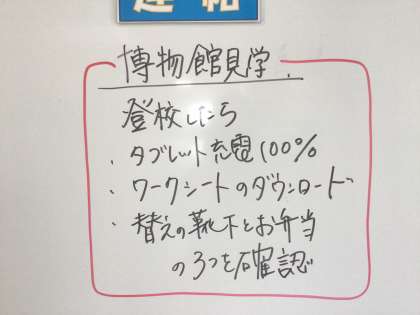 連絡
博物館見学
登校したら
・タブレット充電100%
・ワークシートのダウンロード
・替えの靴下とお弁当
の3つを確認